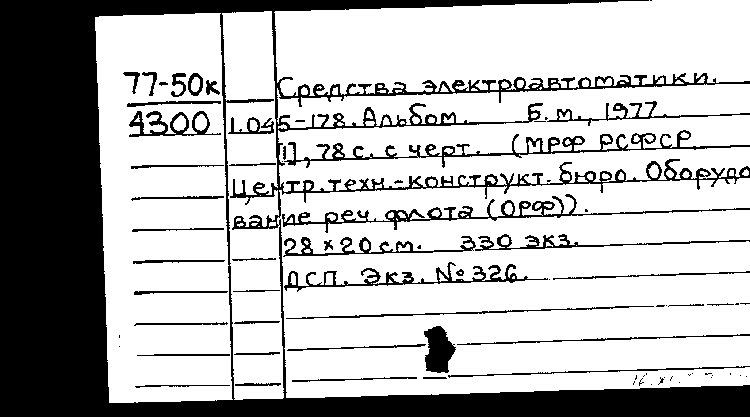 77-50к Средства электроавтоматики.
4300 1.045-178. Альбом. Б.м., 1977.
[1], 78 с. с черт. (МРФ РСФСР.
Центр. техн.-конструкт. бюро. Оборудо
вание реч. флота (ОРФ)).
28 × 20 см. 330 экз.
ДСП. Экз. № 326.